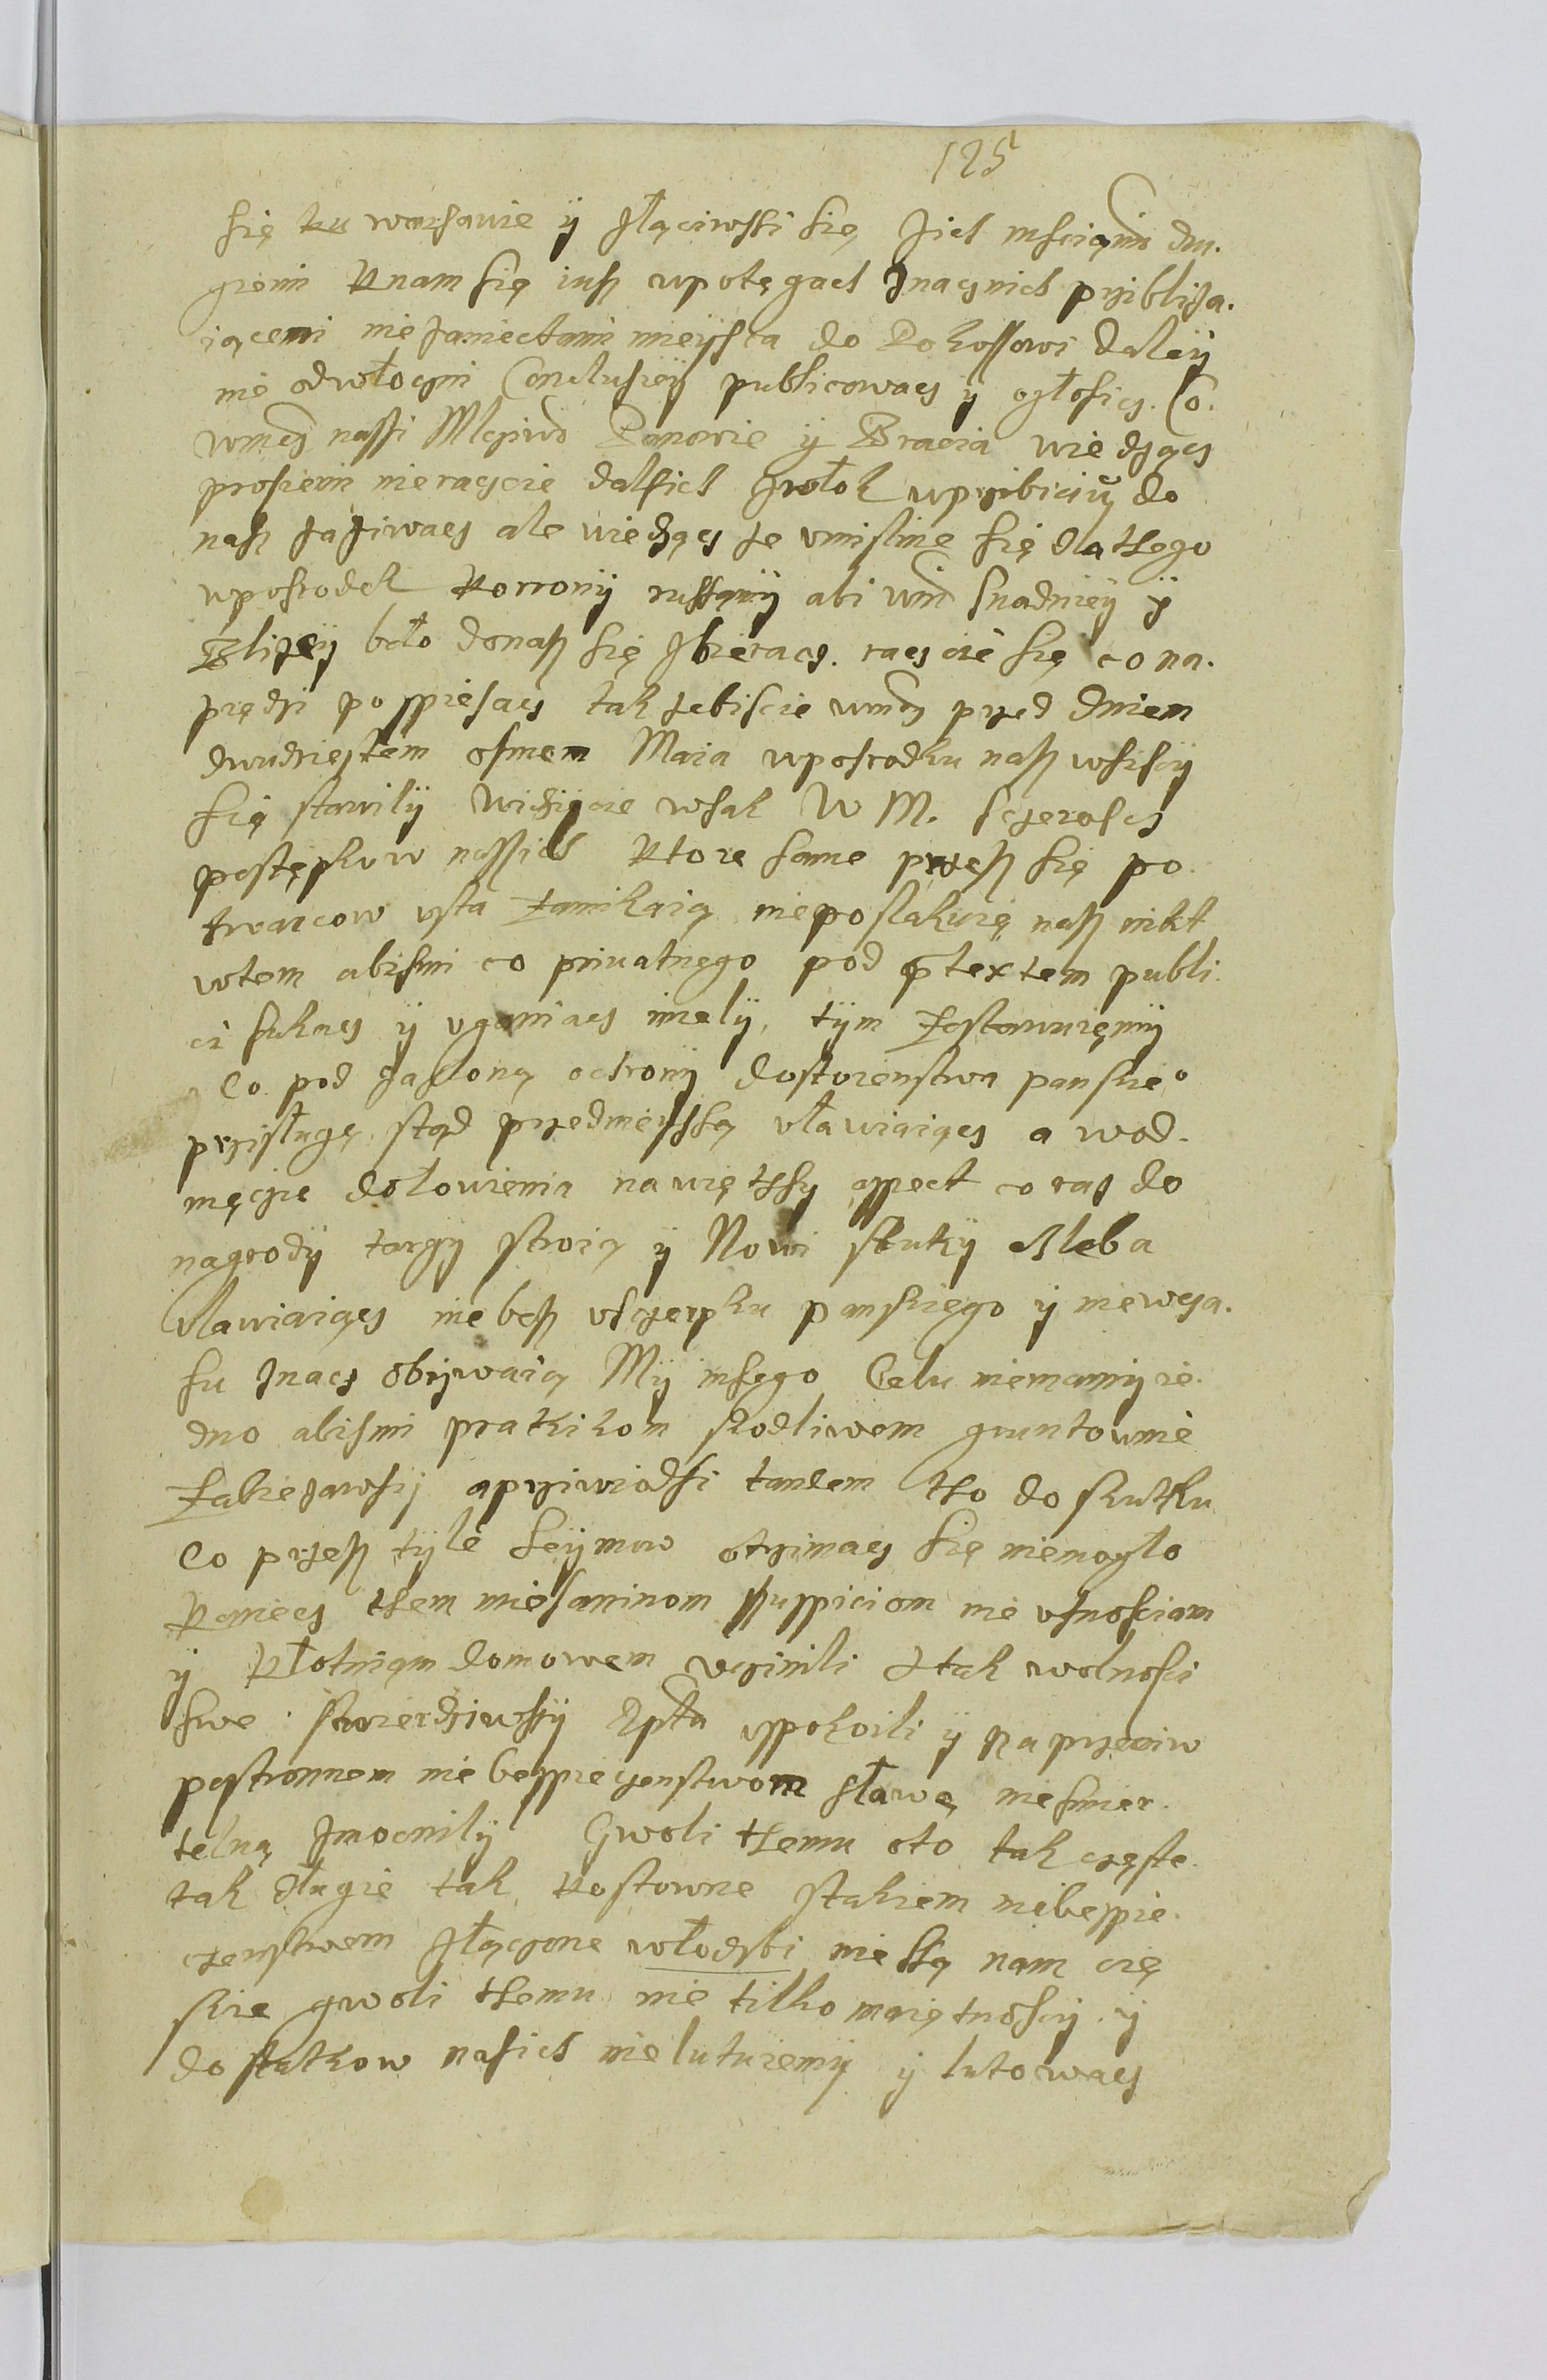 125
się ku warsawie ÿ złącziwsÿ się z ich msciąmi dru.
giemi k nam się iusz w potęgach znacznich przibliza.
iącemi nie zaniectami mieÿsca do Rokossowi daleÿ
nie odwłocżni Conclusiey publicowacz y ogłosicz. Co.
wmcz nassi Mcziwi Panowie ÿ Bracia wiedzącz
prosiemi nie raczcie dalsich zwłok w przibiciu do
nasz zaziwacz ale wiedzącz ze vmislnie się dla thego
w posrodek korrony russamy abi wm snadnieÿ ÿ
Blizeÿ beło do nasz się zbieracz. raczcie się co na.
prędzi pospiesacz tak zebiscie wmcz przed dniem
dwudziestem osmem Maia w posrodku nasz wsisczÿ
się stawilÿ widzicie wsak W M. sczerosć
postępkow nassich ktore same przesz się po.
twarcow vsta zamikaią nie poslakuie nasz nikt
w tem abismi co priuatnego pod prtextem publi.
ci sukacz ÿ vganiacz mielÿ, tÿm zostawuięmÿ
Co pod zasloną ochronÿ dostoienstwa panskieo
przisługę stąd przedmieÿską vławiaiącz a w od.
męczie do łowienia na więthsy appect coraz do
nagrody targÿ stroią ÿ Nowi sztuky chleba
vlawiaiącz nie besz vsczerpku panskiego ÿ niewcza.
su znacz obywaią Mÿ insego Celu nie mamÿ ie.
dno abismi pratkikom skodliwem gruntownie
zabiezawsÿ a prziwiodsi tandem tho do skutku
Co przesz tÿle seÿmow otrzimacz się niemogło
koniecz them miesaninom suspiciom nie vfnosciam
ÿ kłotniąm domowem vczinili A tak wolnosci
swe stwierdziwsÿ Rpta vspokoili ÿ na przeciw
postronnem niebesspieczenstwom sławę niesmier.
telną zmocnilÿ Gwoli themu oto tak częste.
tak dlugie tak kostowne stakiem niebesspie.
czenstwem złączone włodzbi nie są nam cię
skie gwoli themu nie tilko maiętnoscÿ ÿ
dostatkow nasich nie lutuiemÿ ÿ lutowacz